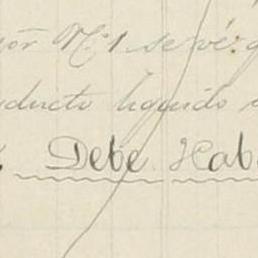 or Nº 1 se vé
ducto liquido
Debe Hab